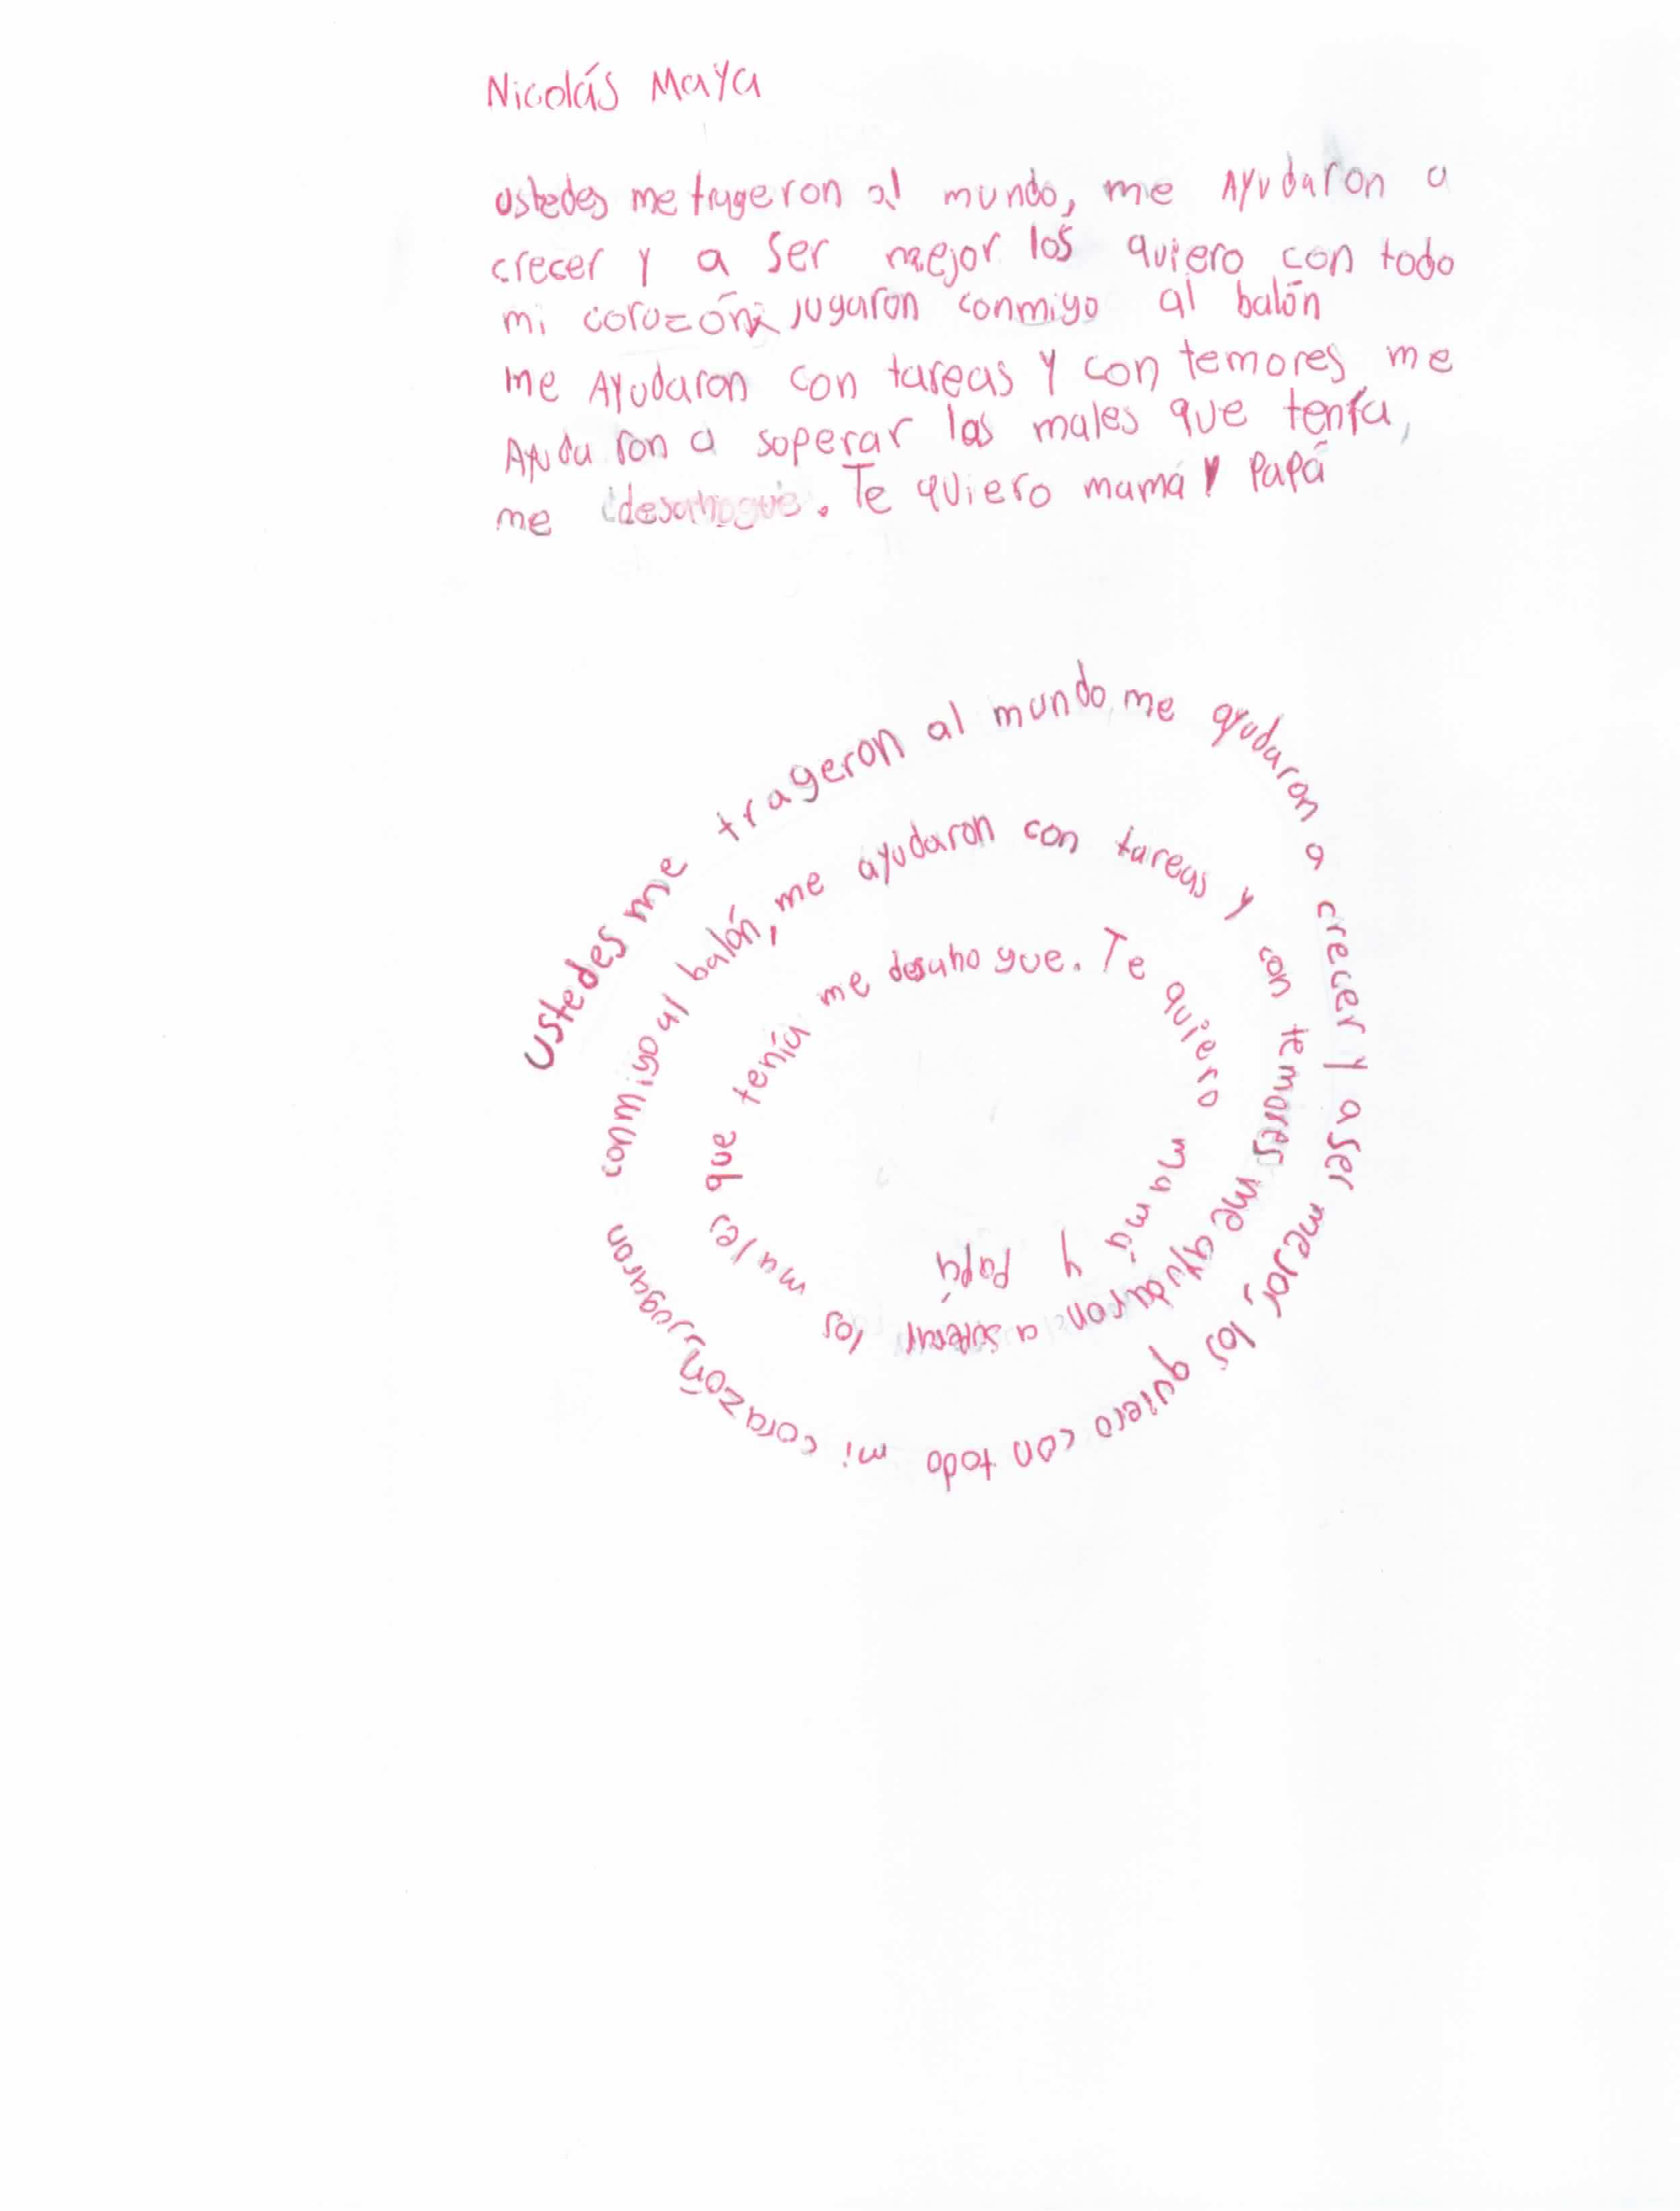 Nicolás Maya
ustedes me trageron al mundo, me Ayudaron a
crecer y a ser mejor los quiero con todo
mi corazón jugaron conmigo al balón
me Ayudaron con tareas y con temores me
Ayudaron a soperar los males que tenía,
me desahogue. Te quiero mamá y Papá
ustedes me trageron al mundo, me ayudaron a crecer y a ser mejor, los quiero con todo mi corazón, jugaron conmigo al balón, me ayudaron con tareas y con temores me ayudaron a superar los males que tenía me desahogue. Te quiero mamá y papá